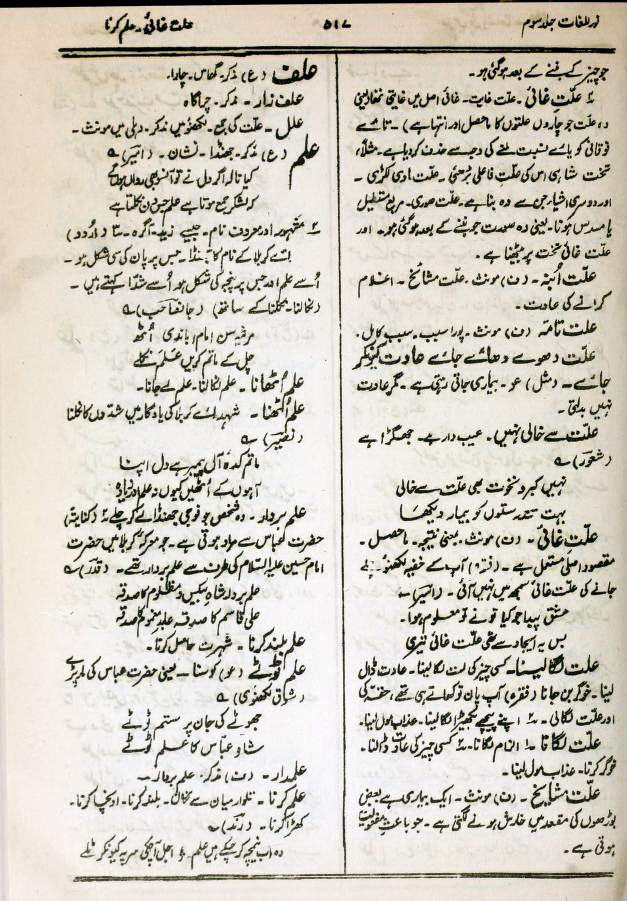 نور اللغات جلد سوم
۵۱۷
علت غائی۔ علم کرنا
جو چیز کے بننے کے بعد ہو گئی ہو۔
علّت غائی۔ علّت غایت۔ غائی اصل میں غایتی تھا یعنی
وہ علّت جو چاروں علتوں کا ماحصل اور انتہا ہے) ۔ تائے
فوقانی کو یائے نسبت ملنے کی وجہ سے حذف کر دیا ہے۔ مثلاً
تخت شاہی اس کی علّت فاعلی بڑھئی۔ علّت مادی لکڑی۔
اور دوسری اشیا جن سے وہ بنا ہے۔ علّت صوری۔ مربع مستطیل
یا مسدس ہونا۔ یعنی وہ صورت جو بننے کے بعد ہو گئی ہو۔ اور
علّت غائی تخت پر بیٹھنا ہے۔
علّت اُبنہ۔ (ن) مونث۔ علّت مشائخ۔ اغلام
کرانے کی عادت۔
علّت تامّہ (ن) مونث۔ پورا سبب۔ سبب کامل۔
علّت دھوے دھائے جائے عادت کیونکر
جائے۔ (مثل) عو۔ بیماری جاتی رہتی ہے۔ مگر عادت
نہیں بدلتی۔
علّت سے خالی نہیں۔ عیب دار ہے۔ جھگڑا ہے
(شعور) ؎
نہیں کبر و نخوت بھی علّت سے خالی
بہت تندرستوں کو بیمار دیکھا
علّت غائی۔ (ن) مونث۔ یعنی نتیجہ۔ ماحصل۔
مقصود اصلی مستعمل ہے۔ (فقرہ) آپ کے خفیہ لکھنؤ چلے
جانے کی علّت غائی سمجھ میں نہیں آئی۔ (اسیر) ؎
عشق پیدا جو کیا تو نے تو معلوم ہوا۔
بس یہ ایجاد سے تھی علّت غائی تیری
علّت لگا لینا۔ کسی چیز کی لت لگا لینا۔ عادت ڈال
لینا۔ خوگر بن جانا (فقرہ) آپ پان تو کھاتے ہی تھے، حقہ کی
اور علّت لگالی۔ ۲؎ اپنے پیچھے بکھیڑا لگا لینا۔ عذاب مول لینا۔
علّت لگانا ۱؎ الزام لگانا۔ ۲؎ کسی چیز کی عادت ڈالنا۔
خوگر کرنا۔ عذاب مول لینا۔
علّت مشائخ۔ (ن) مونث۔ ایک بیماری ہے بعض
بوڑھوں کی مقعد میں خارش ہونے لگتی ہے۔ جو باعث مفعولیت
ہوتی ہے۔
علف (ع) مذکر۔ گھاس۔ چارا۔
علف زار۔ مذکر۔ چراگاہ
علل۔ علّت کی جمع۔ لکھنؤ میں مذکر۔ دہلی میں مونث۔
علم (ع) مذکر۔ جھنڈا۔ نشان۔ (اسیر) ؎
کیا نالہ اگر دل نے تو آنسو بھی رواں ہوگا
کہ لشکر جمع ہوتا ہے علم جس دن نکلتا ہے
۲؎ مشہور اور معروف نام۔ جیسے زید۔ آگرہ۔ ۳؎ (اردو)
شہدائے کربلا کے نام کا جھنڈا۔ جس پر پان کی سی شکل ہو۔
اُسے علم اور جس پر پنجے کی شکل ہو اُسے شدّا کہتے ہیں۔
(نکالنا۔ نکلنا کے ساتھ) (جانصاحب) ؎
مرثیہ سن امام باندی اُٹھ
چل کے ماتم کریں علم نکلے
علم اُٹھانا۔ علم نکالنا۔ علم لے جانا۔
علم اُٹھنا۔ شہدائے کربلا کی یادگار میں شدّوں کا نکلنا
ماتم کدۂ آل پیمبر ہے دل اپنا
آہوں کے اٹھیں کیوں نہ علم
علم بردار۔ وہ شخص جو فوجی جھنڈا لے کر چلے ۲؎ (کنایۃً)
حضرت عباس سے مراد ہوتی ہے۔ جو معرکۂ کربلا میں حضرت
امام حسین علیہ السلام کی طرف سے علم بردار تھے۔ (قدر) ؎
علم بردار شاہ بیکس و مظلوم کا صدقہ
علی قاسم کا صدقہ عابد مغموم کا صدقہ
علم بلند کرنا۔ شہرت حاصل کرنا۔
علم ٹوٹے (عو) کوسنا۔ یعنی حضرت عباس کی مار پڑے
جھوٹے کی جان پر ستم ٹوٹے
شاہ عباس کا علم ٹوٹے
علمدار۔ (ن) مذکر۔ علم بردار۔
علم کرنا۔ تلوار میان سے نکالنا۔ بلند کرنا۔ اونچا کرنا۔
کھڑا کرنا۔ (رند) ؎